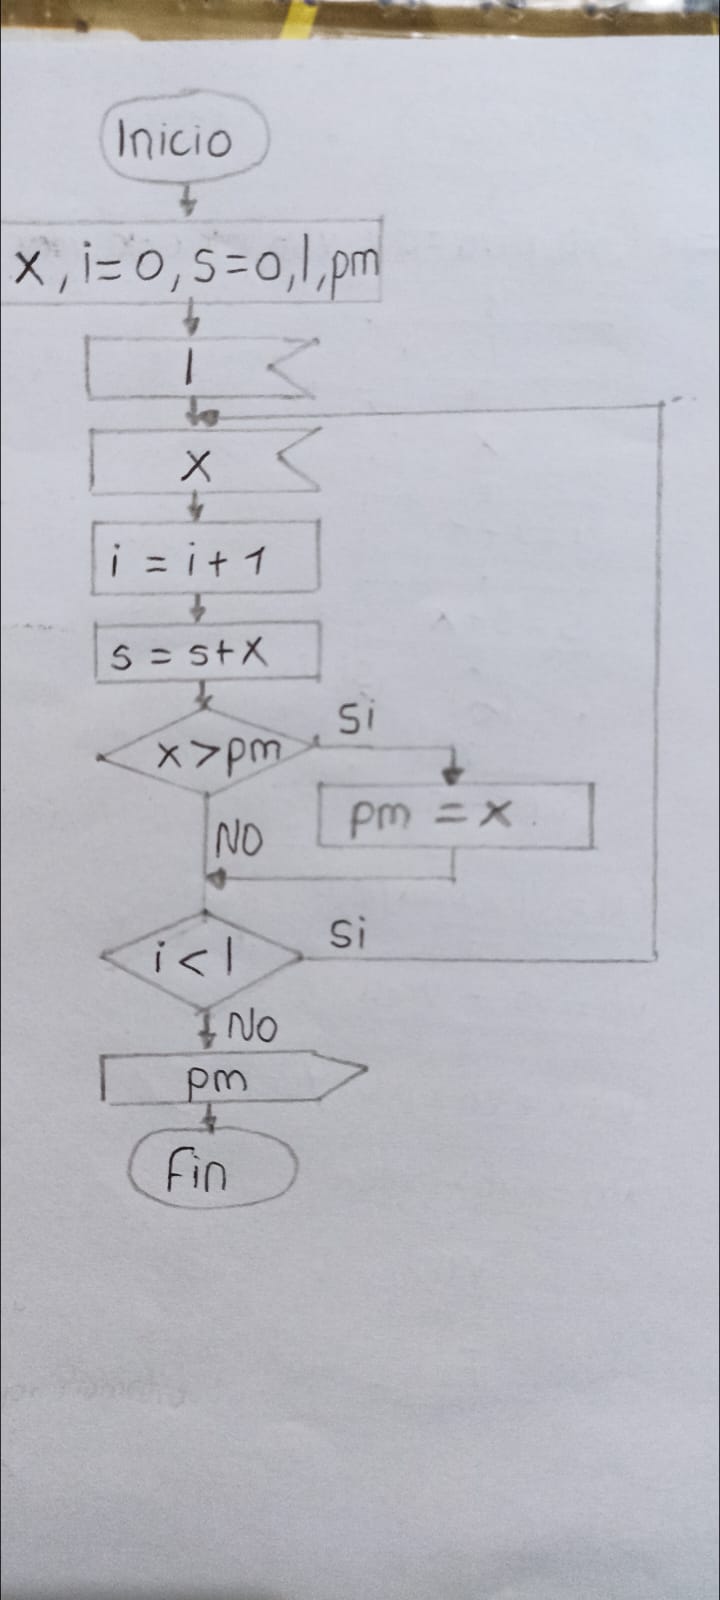 Inicio
x, i=0, s=0, l, pm
l
x
i = i + 1
s = s+x
x > pm
Si
pm = x
NO
i < l
Si
NO
pm
Fin